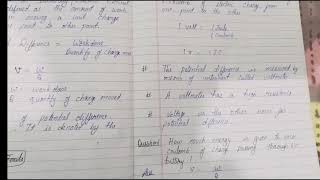 defined as the amount of work
in moving a unit charge
point to other point.
Difference = Work done
Quantity of charge moved
V = W/Q
W = work done
quantity of charge moved
of potential difference
It is denoted by the
from
one point to the other
1 volt = 1 Joule
1 Coulomb
# The potential difference is measured by
means of instrument called voltmeter
# A voltmeter has a high resistance
# Voltage is the other name for
potential difference.
Question How much energy is given to one
Coulomb of charge passing through
battery?
Ans V = W/Q